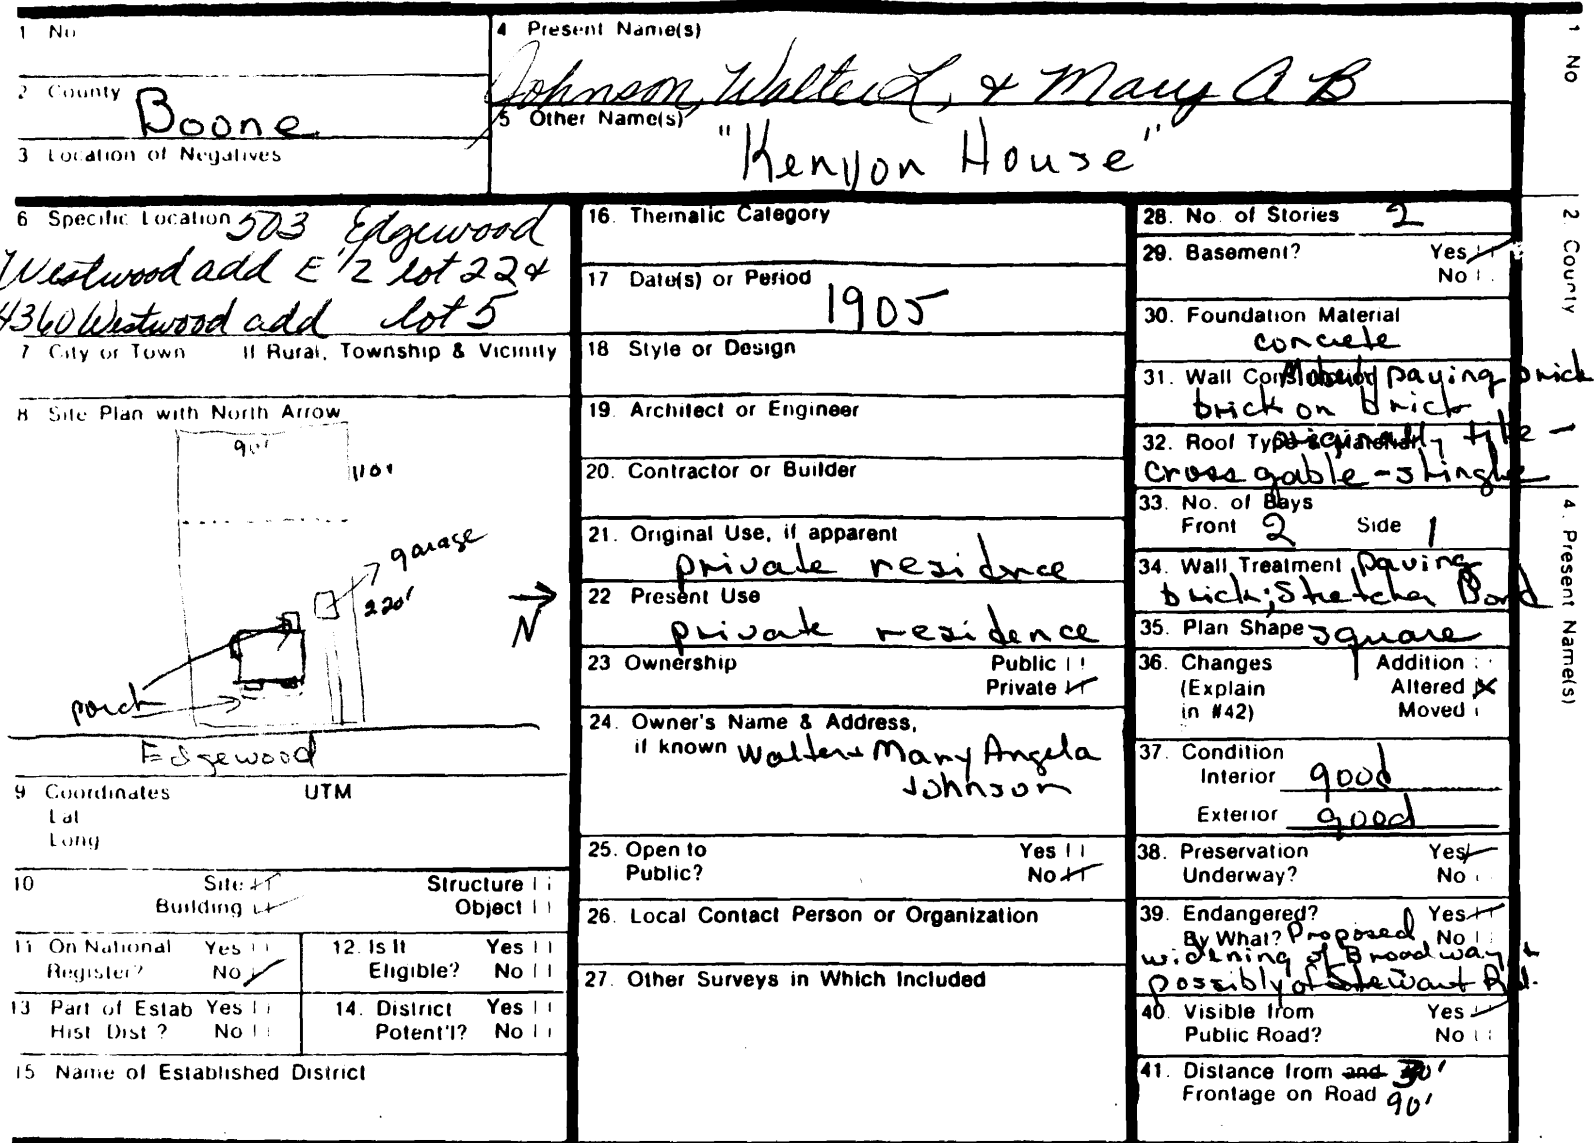 1 No
4 Present Name(s)
Johnson, Walter L, & Mary A B
2 County
Boone
5 Other Name(s)
"Kenyon House"
3 Location of Negatives
6 Specific Location 503 Edgewood
Westwood add E 1/2 lot 22 &
Westwood add lot 5
7 City or Town If Rural, Township & Vicinity
8 Site Plan with North Arrow
90'
110'
garage
220'
N
porch
Edgewood
9 Coordinates UTM
Lat
Long
10 Site Structure
Building Object
11 On National Register? Yes No
12. Is It Eligible? Yes No
13 Part of Estab Hist Dist? Yes No
14. District Potent'l? Yes No
15 Name of Established District
16. Thematic Category
17 Date(s) or Period
1905
18 Style or Design
19. Architect or Engineer
20. Contractor or Builder
21. Original Use, if apparent
private residence
22 Present Use
private residence
23 Ownership Public
Private
24. Owner's Name & Address,
if known Walter & Mary Angela
Johnson
25. Open to Yes
Public? No
26. Local Contact Person or Organization
27. Other Surveys in Which Included
28. No. of Stories 2
29. Basement? Yes
No
30. Foundation Material
concrete
31. Wall Construction paving brick
brick on brick
32. Roof Type & Material originally tile -
cross gable - shingle
33. No. of Bays
Front 2 Side 1
34. Wall Treatment paving
brick; Stretcher Bond
35. Plan Shape square
36. Changes Addition
(Explain Altered
in #42) Moved
37. Condition
Interior good
Exterior good
38. Preservation Yes
Underway? No
39. Endangered? Yes
By What? Proposed No
widening of Broadway &
possibly of Stewart Rd.
40. Visible from Yes
Public Road? No
41. Distance from and 30'
Frontage on Road 90'
1 No
2 County
4. Present Name(s)